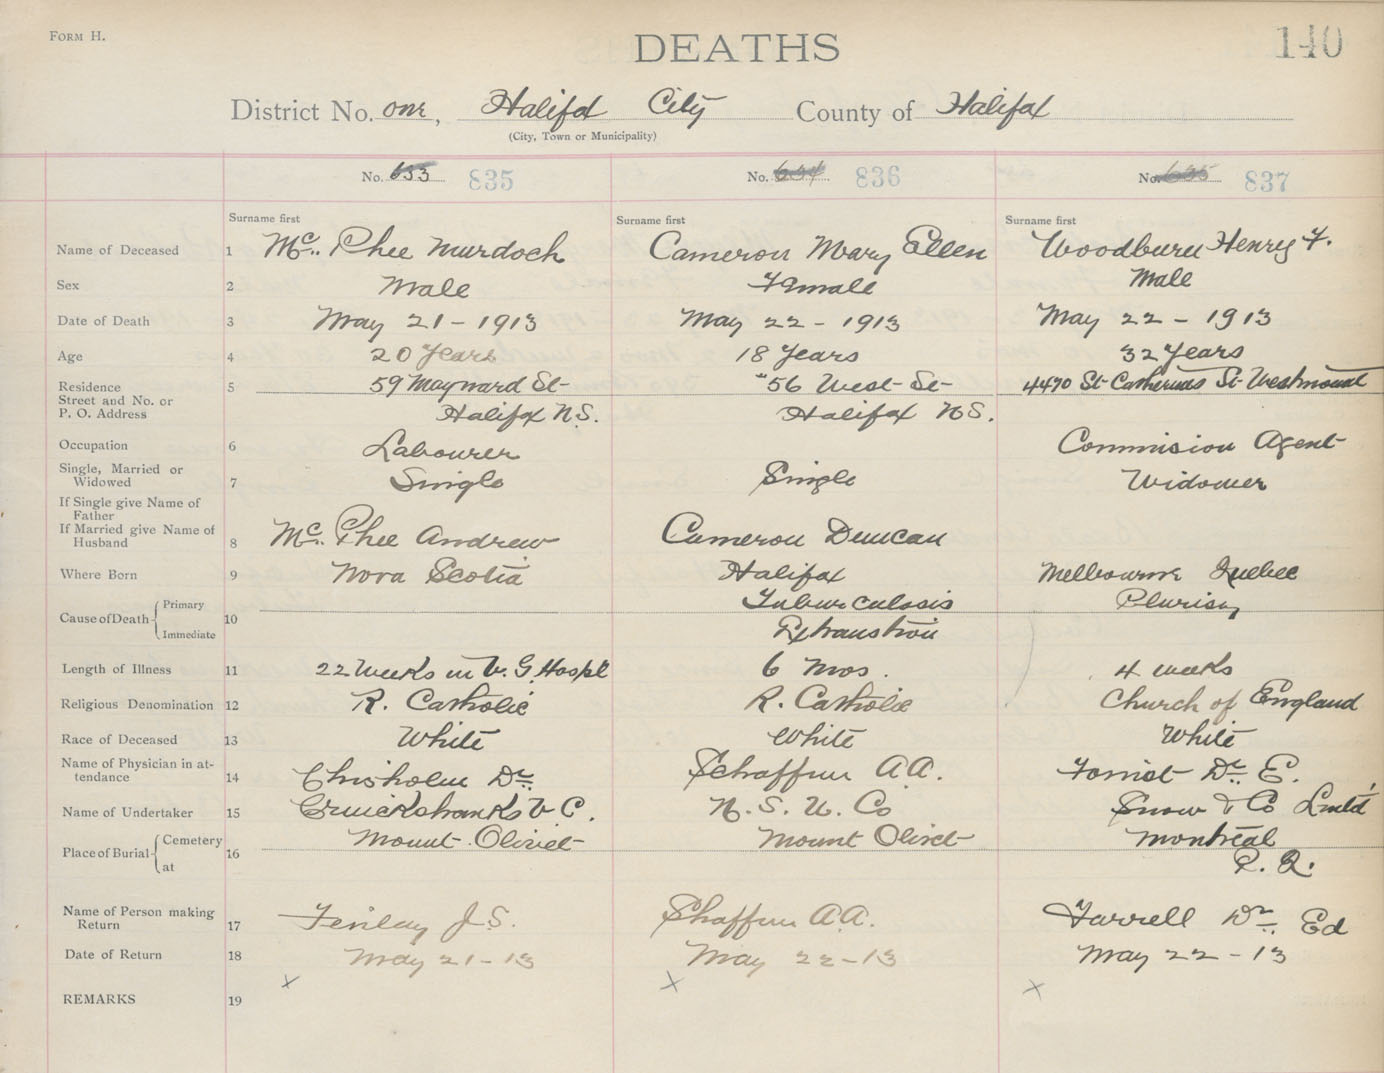 FORM H.
DEATHS
140
District No. one, Halifax City County of Halifax
(City, Town or Municipality)
No. 633 835 No. 634 836 No. 635 837
Surname first Surname first Surname first
Name of Deceased 1 Mc.. Phee Murdoch Cameron Mary Ellen Woodbury Henry F.
Sex 2 Male Female Male
Date of Death 3 May 21 - 1913 May 22 - 1913 May 22 - 1913
Age 4 20 Years 18 Years 32 Years
Residence Street and No. or P. O. Address 5 59 Maynard St- "56 West St- 4470 St Catherines St Westmount
Halifax N.S. Halifax N S.
Occupation 6 Labourer Commision Agent
Single, Married or Widowed 7 Single Single Widower
If Single give Name of Father
If Married give Name of Husband 8 Mc.. Phee Andrew Cameron Duncan
Where Born 9 Nova Scotia Halifax Melbourne Quebec
Cause of Death Primary Tuburculosis Plurisy
Immediate 10 Exhaustion
Length of Illness 11 22 Weeks in V. G. Hospl 6 Mos. 4 weeks
Religious Denomination 12 R. Catholic R. Catholic Church of England
Race of Deceased 13 White White White
Name of Physician in attendance 14 Chisholm Dr. Schaffner A A. Dr. E.
Name of Undertaker 15 Cruickshanks V C. N. S. U. Co Snow & Co Lmtd
Place of Burial Cemetery 16 Mount Olivet Mount Olivet Montreal
at P. Q.
Name of Person making Return 17 Finlay J. S. Shaffner A. A. Farrell Dr. Ed
Date of Return 18 May 21 - 13 May 22 - 13 May 22 - 13
REMARKS 19 x x x